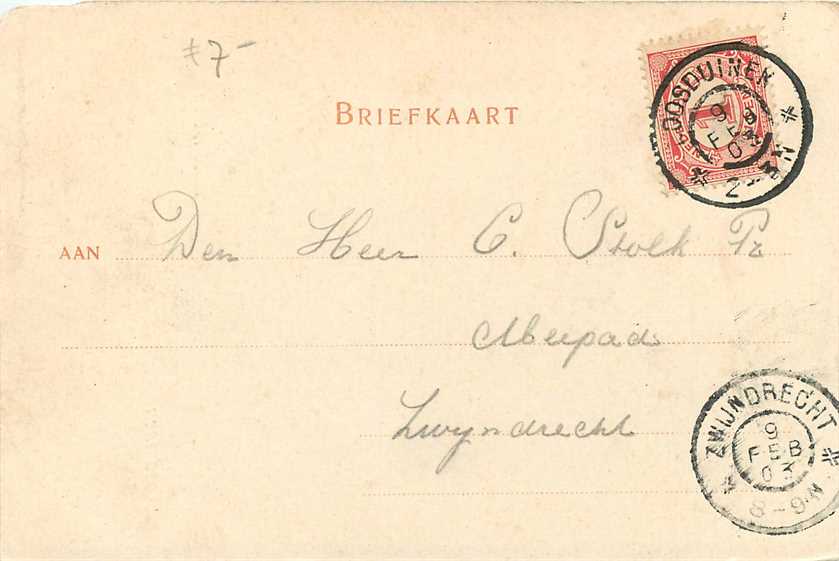 ≠ 7-
BRIEFKAART
LOOSDUINEN
9 FEB 03
1
AAN Den Heer C. Stolk Pz
Meerpad
Zwyndrecht
ZWIJNDRECHT
9
FEB
03
8-9 N